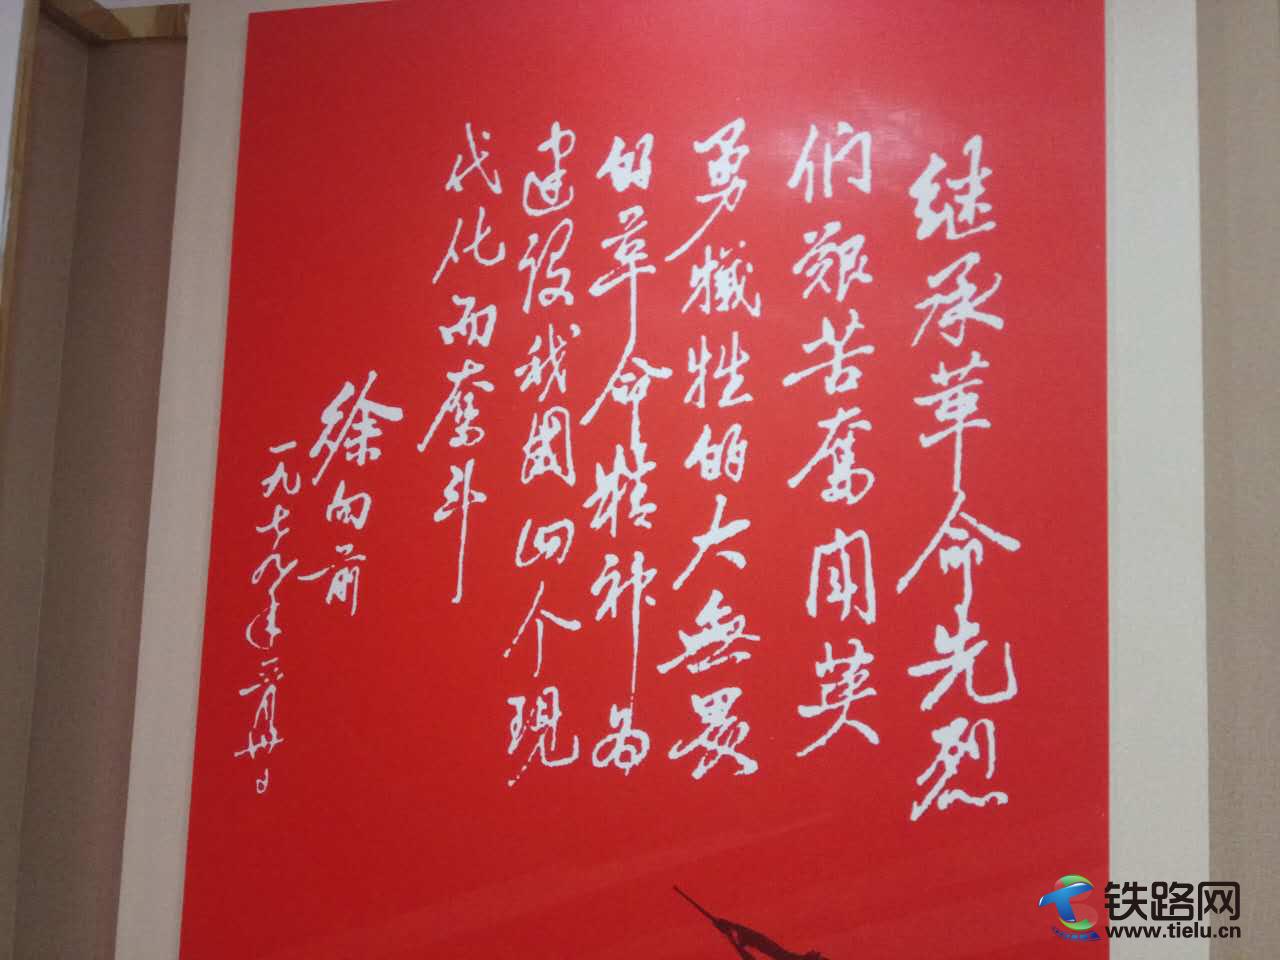 继承革命先烈
们艰苦奋闘英
勇犠牲的大無畏
的革命精神为
建设我国四个现
代化而奮斗
徐向前
一九七九年二月廿日
铁路网
www.tielu.cn